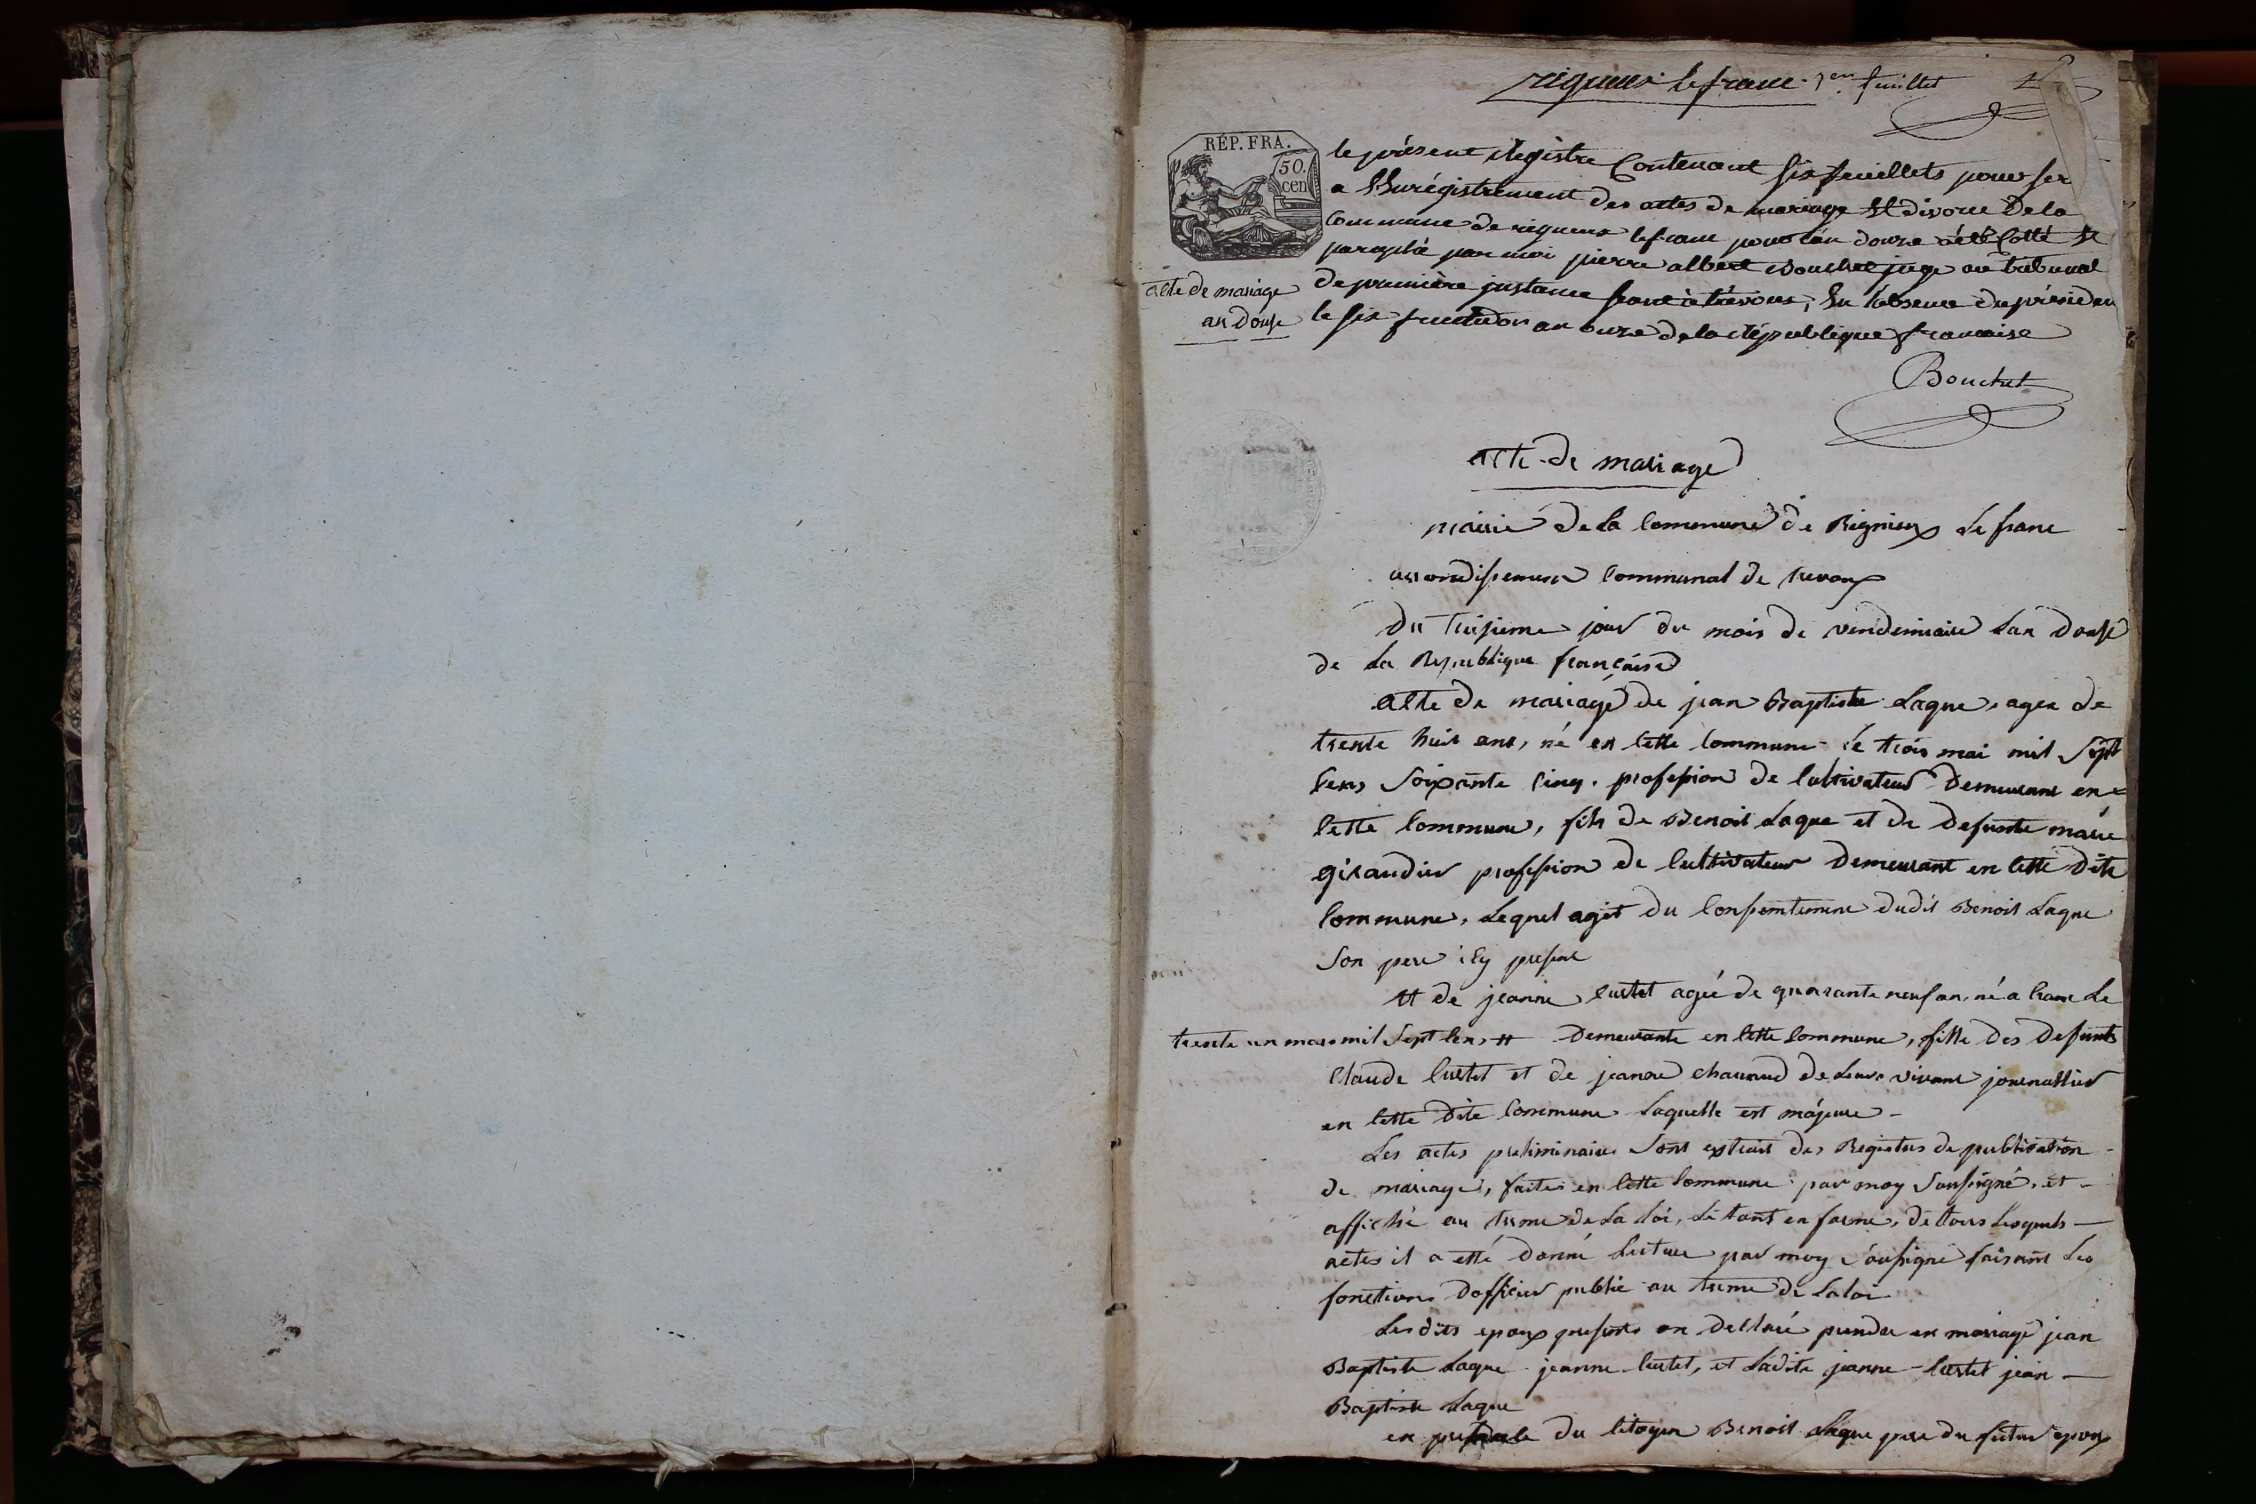 rigneux le franc 1er feuillet
RÉP. FRA.
50. cen
le présent Registre Contenant six feuillets pour ser
a L'Enrégistrement des actes de mariage Et divorce De la
Commune de rigneux le franc pour l'an douze a été Cotté Et
paraphé par moi pierre albert Bouchet juge au tribunal
de première instance séant à trévoux, En l'absence du présiden
le six fructidor an onze de la République francaise
acte de mariage
an douse
Bouchet
acte de mariage
mairie de La Commune de Rignieux Le franc
arrondissement Communal de trevoux
Du troisieme jour du mois de vendemiaire L'an douse
de La Republique française
acte de mariage de jean Baptiste Laque, agee de
trente huit ans, né en Cette Commune le trois mai mil Sept
Cens Soixante Cinq. profession de Cultivateur Demeurant en
Cette Commune, fils de Benoit Laque et de Defunte marie
giraudier profession de Cultivateur Demeurant en Cette Dite
Commune, Lequel agit du Consentement dudit Benoit Laque
Son pere icy present
Et de jeanne Curtet agée de quarante neuf an, né a Crans Le
trente un mars mil Sept Cens # Demeurante en Cette Commune, fille des Defunts
Claude Curtet et de jeanne chanaud de Leurs vivant journallier
en Cette Dite Commune Laquelle est majeure
Les actes preliminaires Sont extrait des Registres de publication
de mariage, faites en Cette Commune par moy Soussigné, et
affiché au terme de La Loi, Le tout en forme, de tous Lesquels
actes il a etté donné Lecture par moy Soussigné faisant Les
fonctions D'officier public au terme de La loi
Les dits epoux presents on declaré prendre en mariage jean
Baptiste Laque jeanne Curtet, et Ladite jeanne Curtet jean
Baptiste Laque
en presence du Citoyen Benoit Laque pere du futur epoux